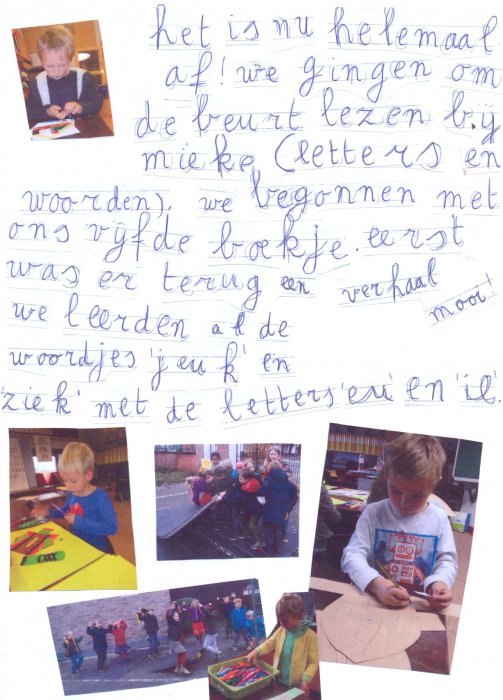 het is nu helemaal
af! we gingen om
de beurt lezen bij
mieke (letters en
woorden). we begonnen met
ons vijfde boekje. eerst
was er terug een verhaal
mooi!
we leerden al de
woordjes 'jeuk' en
'ziek' met de letters 'eu' en 'ie'.